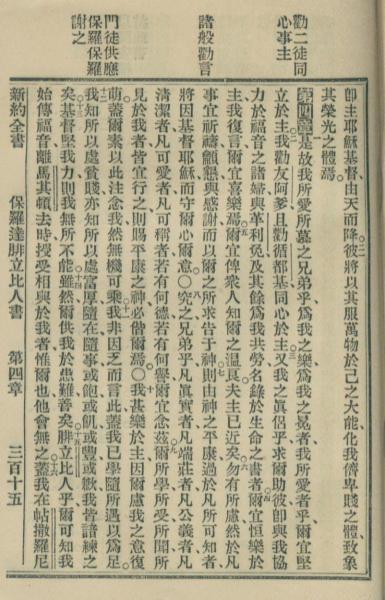 勸二徒同
心事主
諸般勸言
門徒供應
保羅保羅
謝之
卽主耶穌基督由天而降彼將以其服萬物於己之大能化我儕卑賤之體致象
其榮光之體焉
第四章是故我所愛所慕之兄弟乎爲我之樂爲我之冕者我所愛者乎爾宜堅
立於主我勸友阿爹且勸循都基同心於主又我之眞侶乎求爾助彼卽與我協
力於福音之諸婦與革利免及其餘爲我共勞名錄於生命之書者爾宜恒樂於
主我復言爾宜喜樂焉爾宜俾衆人知爾之溫良夫主已近矣勿有所慮然於凡
事宜祈禱籲懇與感謝而以爾之所求告于神則由神之平康過於凡所可知者
將因基督耶穌而守爾心爾意〇究之兄弟乎凡眞實者凡端莊者凡公義者凡
清潔者凡可愛者凡可稱者若有何德若有何譽爾宜念茲爾所學所受所聞所
見於我者皆宜行之則賜平康之神必偕爾焉〇我甚樂於主因爾慮我之意復
萌蓋爾素以此注念我然無機可乘我非因乏而言此蓋我已學隨所遇以爲足
我知所以處貧賤亦知所以處富厚隨在隨事或飽或飢或豐或歉我皆諳練之
矣基督堅我力則我無所不能雖然爾供我於患難善矣腓立比人乎爾可知我
始傳福音離馬其頓去時授受相與於我者惟爾也他會無之蓋我在帖撒羅尼
新約全書 保羅達腓立比人書 第四章 三百十五